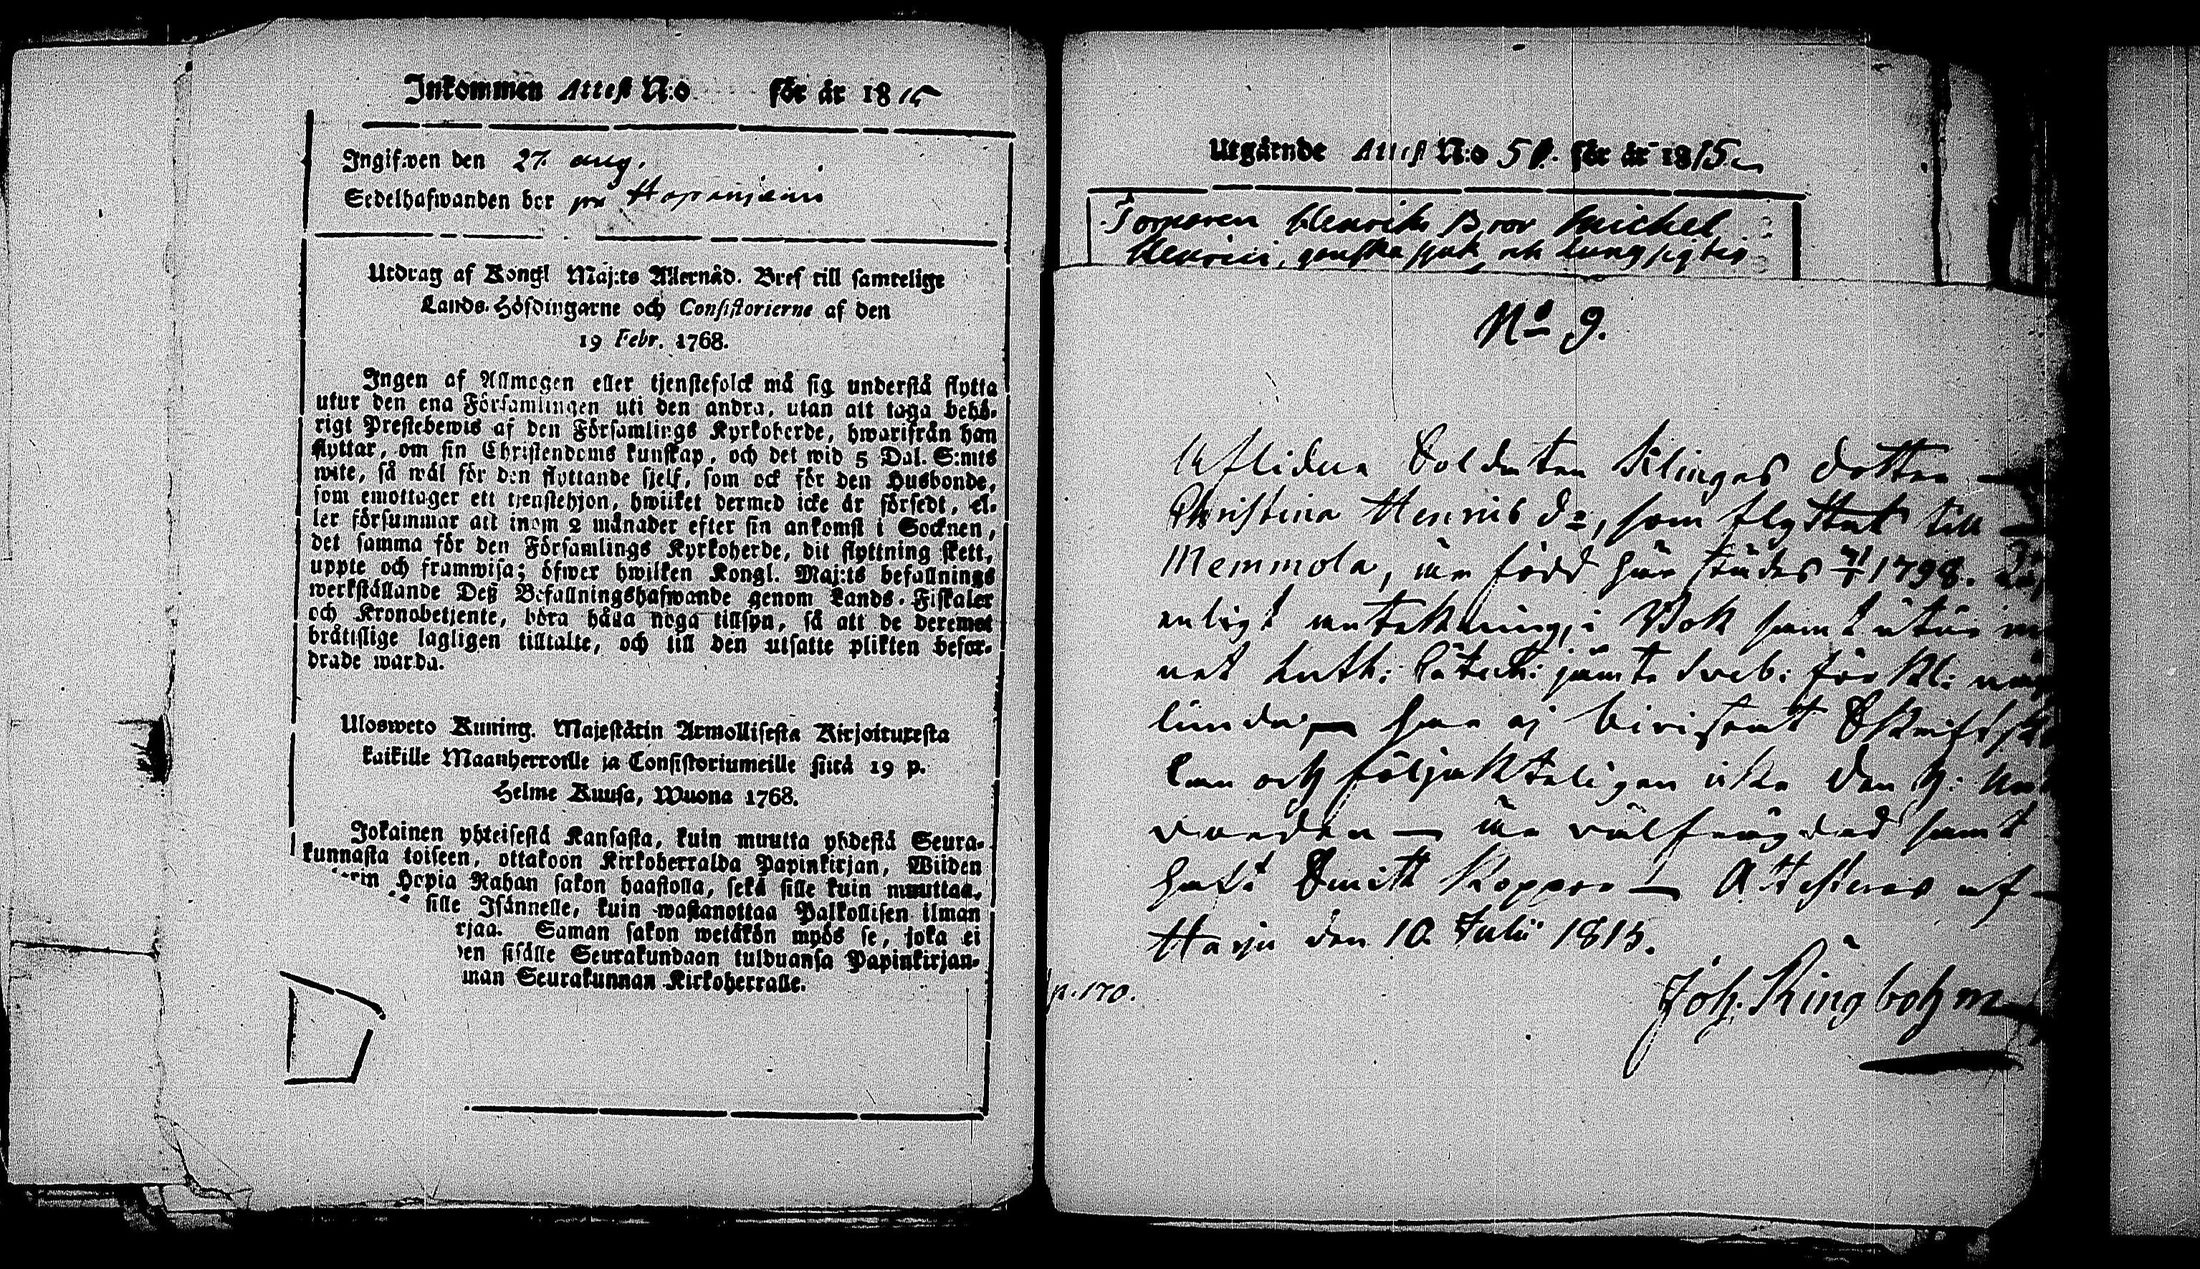 Inkommen Attest N:o för år 1815
Ingifwen den 27. aug.
Sedelhafwanden bor på
Utdrag af Kongl Maj:ts Allernåd. Bref till samtelige
Lands-Höfdingarne och Consistorierne af den
19 Febr. 1768.
Ingen af Allmogen eller tjenstefolck må sig understå flytta
utur den ena Församlingen uti den andra, utan att taga behö-
rigt Prestebewis af den Församlings Kyrkoherde, hwarifrån han
flyttar, om sin Christendoms kunskap, och det wid 5 Dal. S:mts
wite, så wäl för den flyttande sjelf, som ock för den Husbonde,
som emottager ett tjenstehjon, hwilket dermed icke är försedt, el-
ler försummar att inom 2 månader efter sin ankomst i Socknen,
det samma för den Församlings Kyrkoherde, dit flyttning skett,
uppte och framwisa; öfwer hwilken Kongl. Maj:ts befallnings
werkställande Deß Befallningshafwande genom Lands-Fiskaler
och Kronobetjente, böra hålla noga tillsyn, så att de deremot
bråttslige lagligen tilltalte, och till den utsatte plikten befor-
drade warda.
Ulosweto Kuning. Majestätin Armollisesta Kirjoituxesta
kaikille Maanherroille ja Consistoriumeille siitä 19 p.
Helme Kuusa, Wuona 1768.
Jokainen yhteisestä Kansasta, kuin muutta yhdestä Seura-
kunnasta toiseen, ottakoon Kirkoherralda Papinkirjan, Wiiden
Hopia Rahan sakon haastolla, sekä sille kuin muuttaa,
sille Isännelle, kuin wastanottaa Palkollisen ilman
rjaa. Saman sakon wetäkön myös se, joka ei
den sisälle Seurakundaan tulduansa Papinkirjan-
man Seurakunnan Kirkoherralle.
Utgårnde Attest N:o 50. för år 1815
Torparen Henriks Bror Michel
Henrici, ganska sjuk och lungsigtig
No 9.
Aflidne Soldaten Klingas dotter
Christina Henricsd:r, som flyttat till
Memmola, är född härstädes 1798.
enligt anteckning, i Bok samt utan
nat Luth: Catech: jämte Sveb: förkl:
har ej bivistat Skriftsko
lan och följakteligen icke den H:
varden är välfrägdad samt
haft Smitt Koppor Attesteras af
Harju den 10 Julii 1815.
Joh. Ringbohm
p. 170.